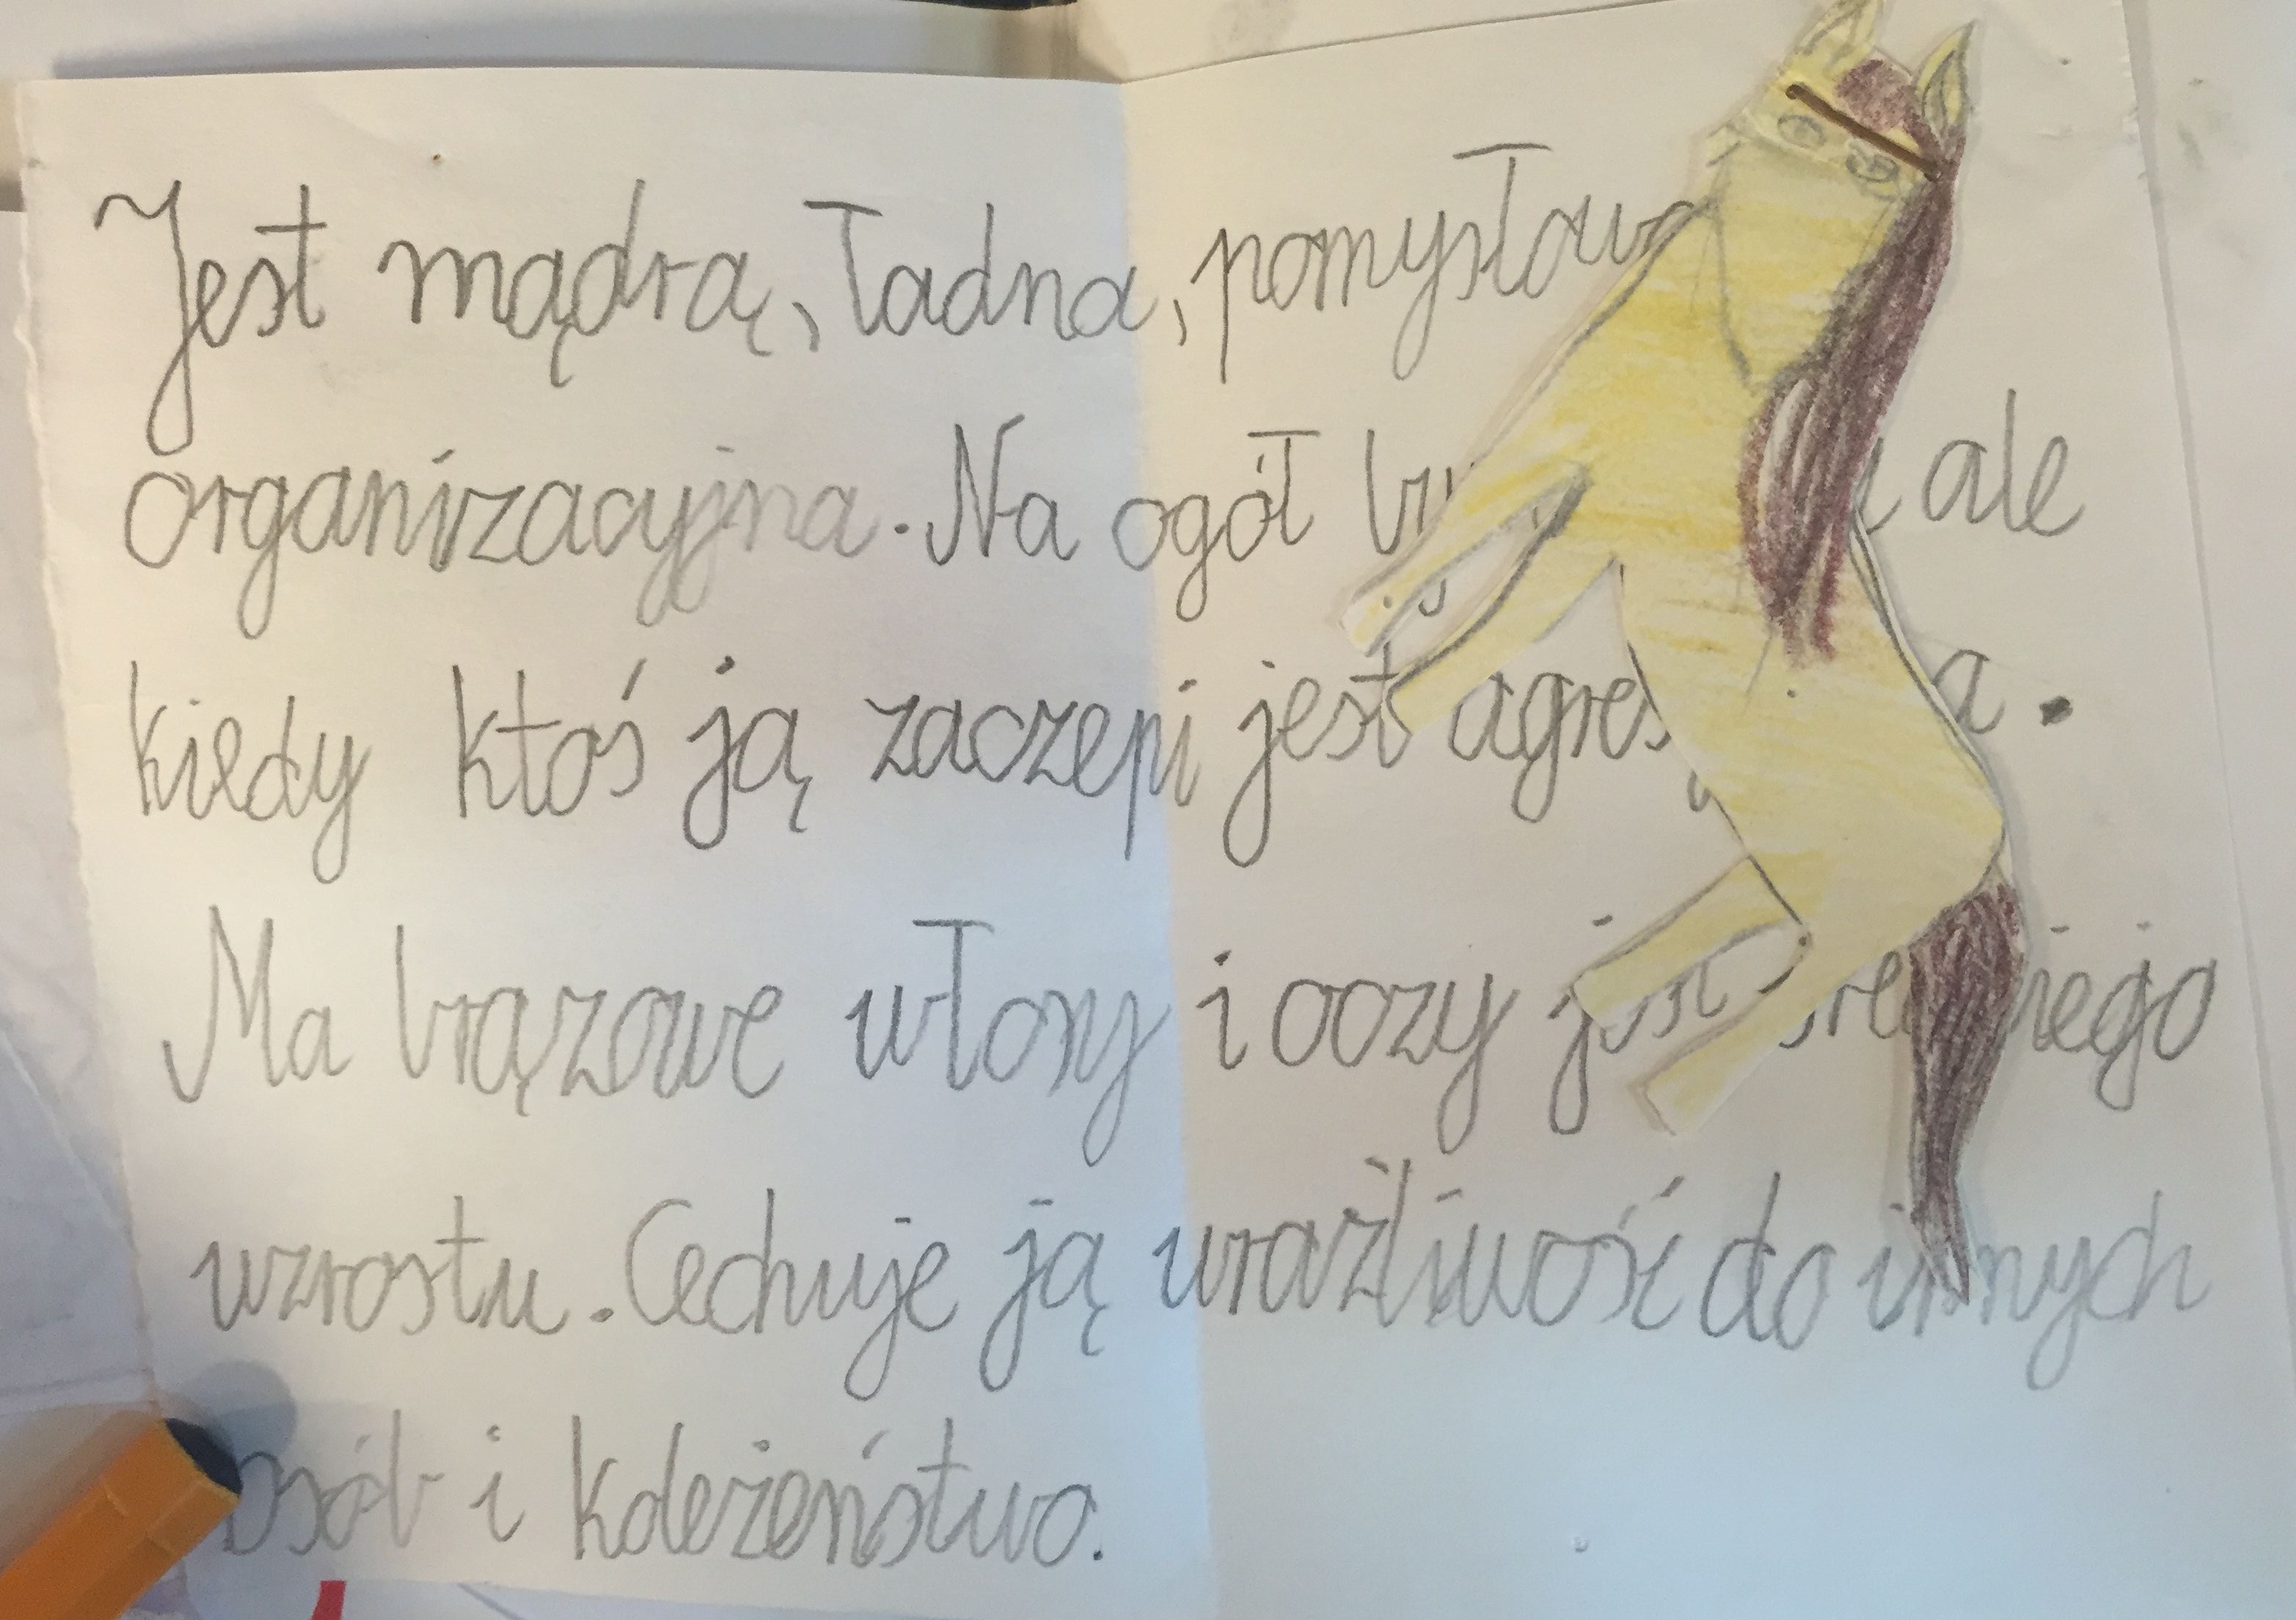 Jest mądrą, ładna, pomysłowa
organizacyjna. Na ogół ale
kiedy ktoś ją zaczepi jest
Ma brązowe włosy i oczy jest
wzrostu. Cechuje ją wrażliwość do innych
osób i koleżeństwo.